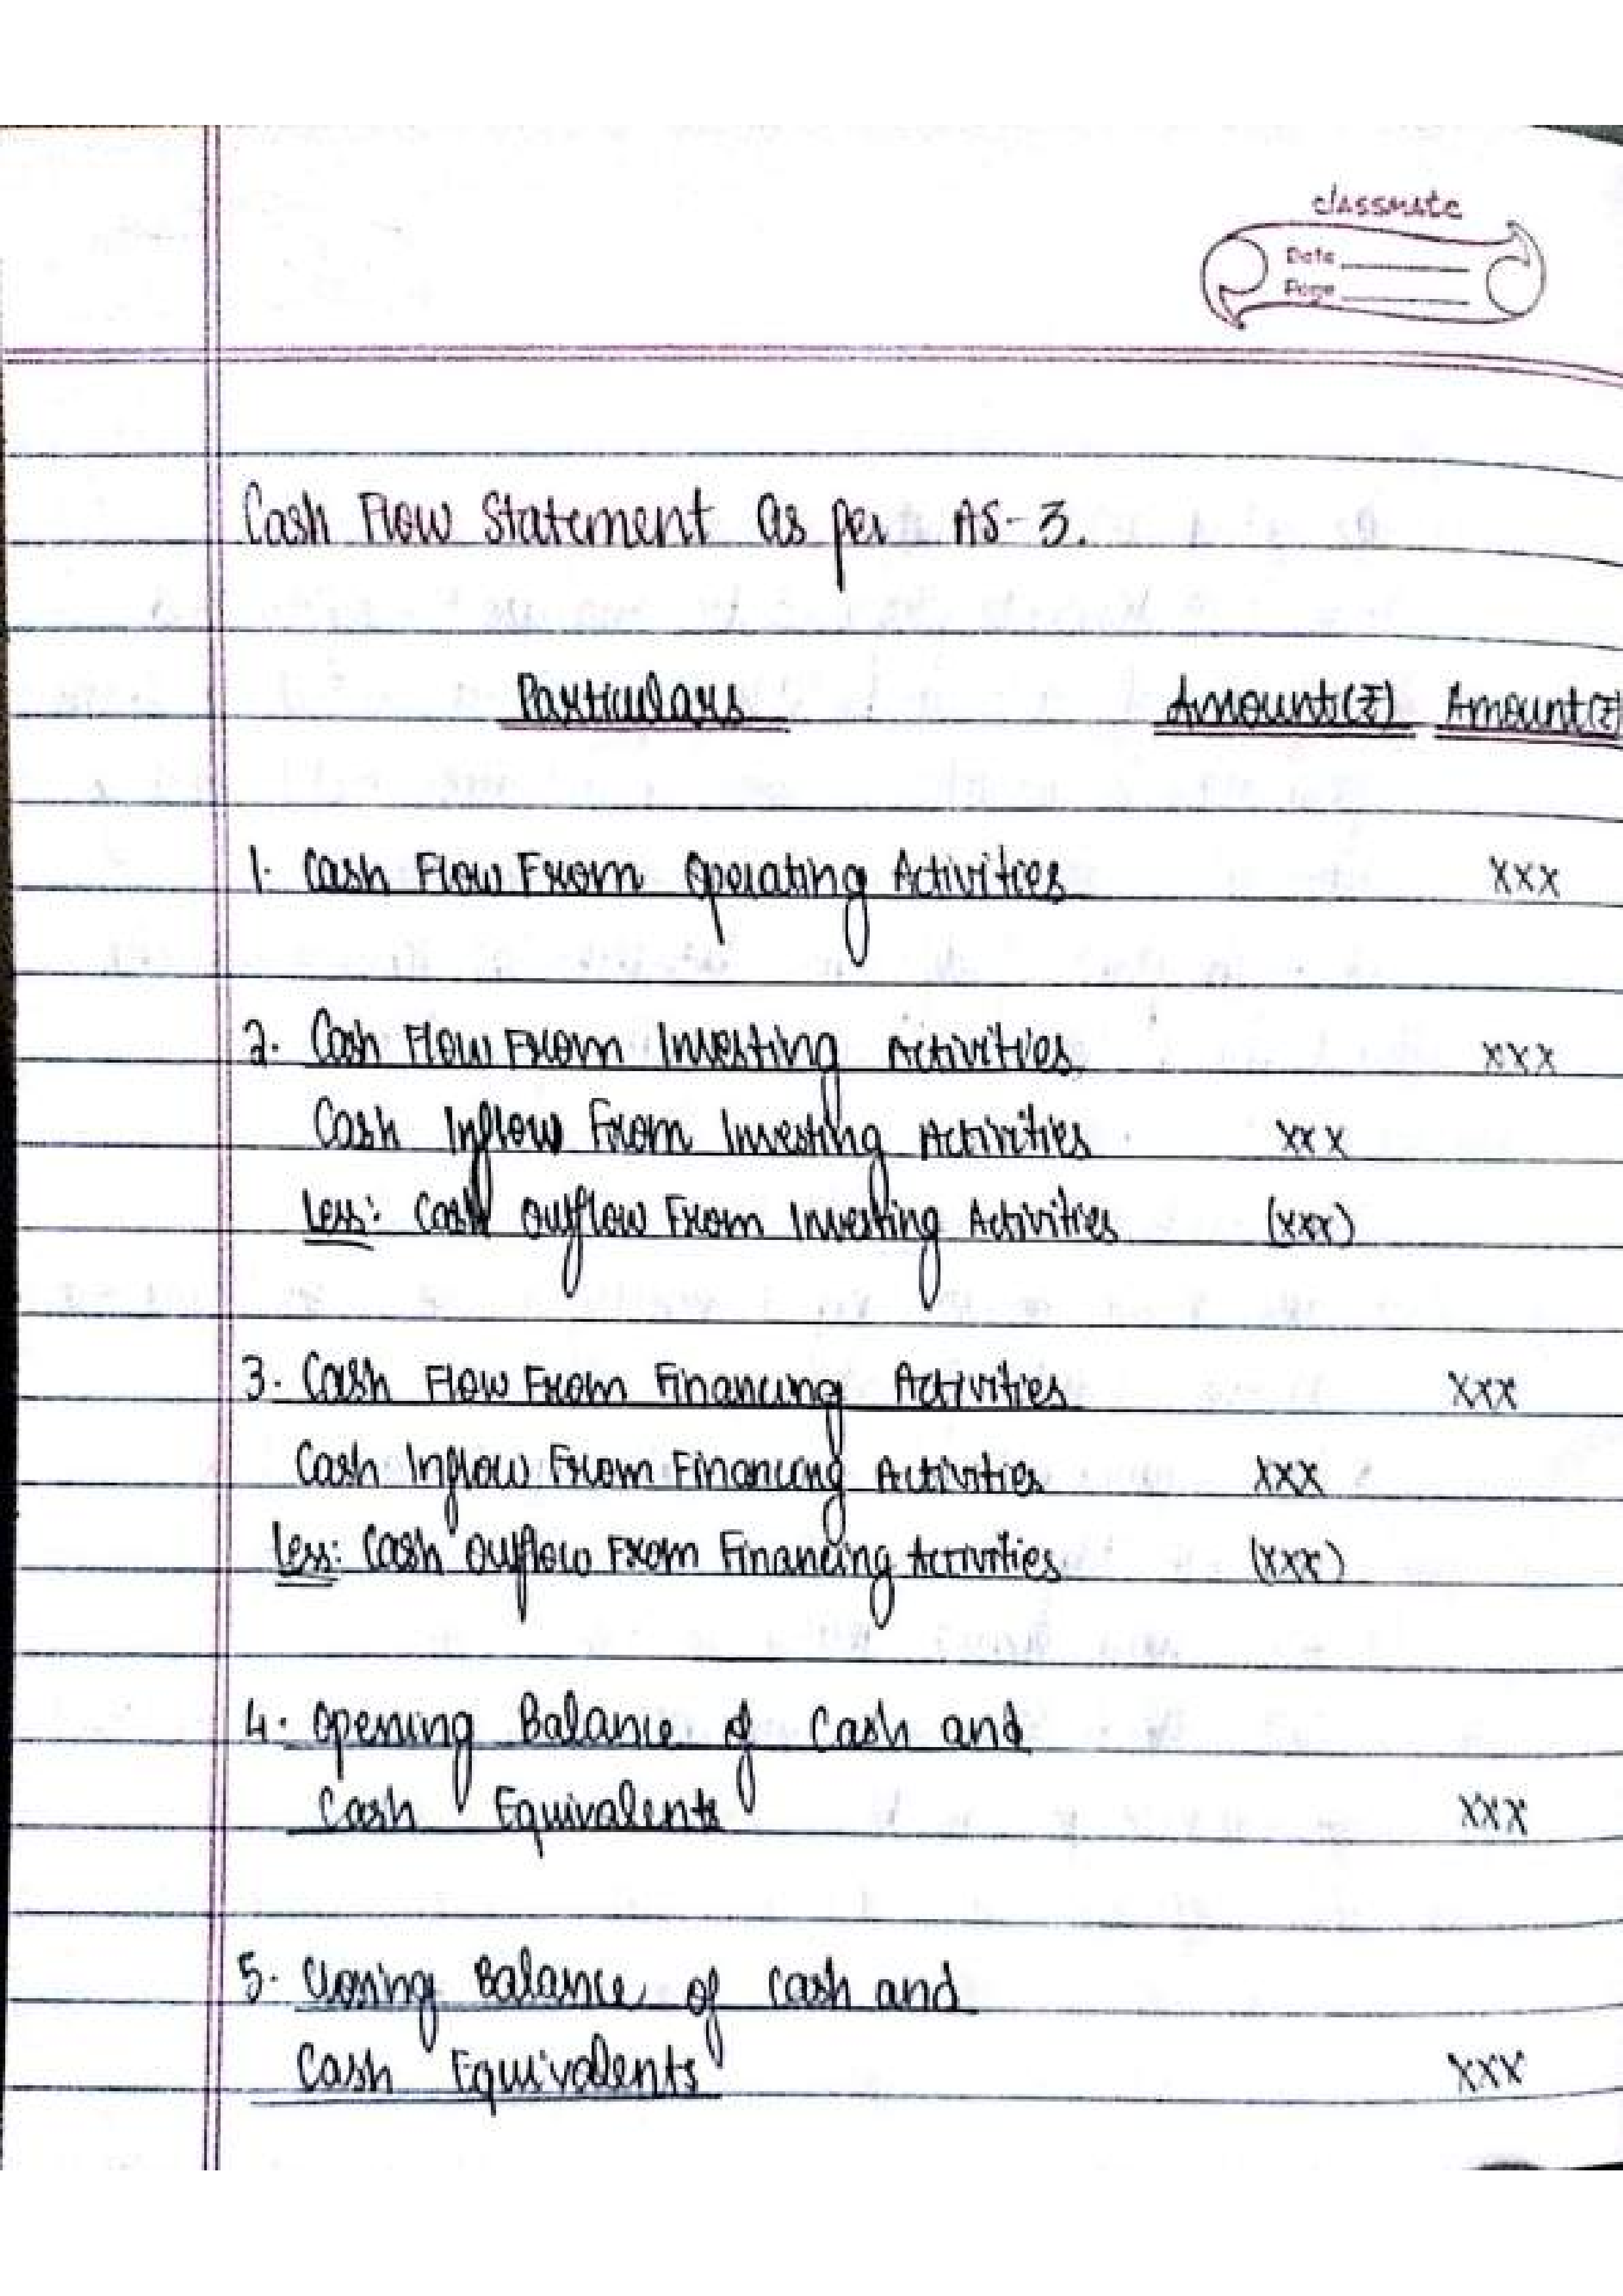 classmate
Date
Page
Cash Flow Statement as per AS-3.
Particulars Amount(₹) Amount(₹)
1. Cash Flow From Operating Activities xxx
2. Cash Flow From Investing Activities xxx
Cash Inflow From Investing Activities xxx
Less: Cash outflow From Investing Activities (xxx)
3. Cash Flow From Financing Activities xxx
Cash Inflow From Financing Activities xxx
Less: Cash outflow From Financing Activities (xxx)
4. Opening Balance of Cash and
Cash Equivalents xxx
5. Closing Balance of cash and
Cash Equivalents xxx